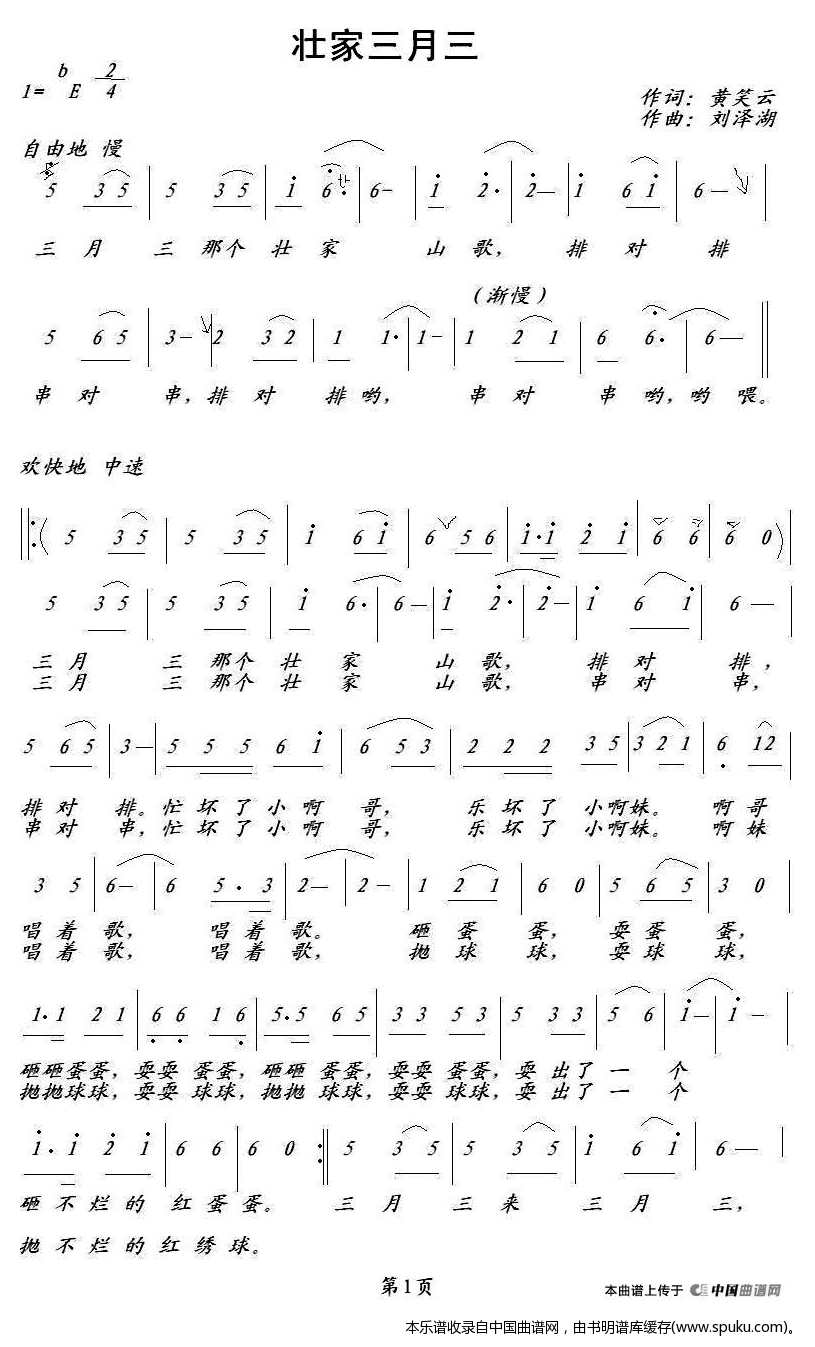 壮家三月三
1= bE 2/4
作词：黄笑云
作曲：刘泽湖
自由地 慢
5 3 5 | 5 3 5 | i 6· | 6- | i 2· | 2— | i 6 i | 6 — |
三 月 三 那个 壮 家 山 歌， 排 对 排
（渐慢）
5 6 5 | 3— | 2 3 2 | 1 1· | 1— | 1 2 1 | 6 6· | 6— ||
串 对 串，排 对 排 哟， 串 对 串 哟，哟 喂。
欢快地 中速
||:( 5 3 5 | 5 3 5 | i 6 i | 6 5 6 | i·i 2 i | 6 6 | 6 0 )|
5 3 5 | 5 3 5 | i 6· | 6 — | i 2· | 2— | i 6 i | 6 — |
三 月 三 那个 壮 家 山 歌， 排 对 排，
三 月 三 那个 壮 家 山 歌， 串 对 串，
5 6 5 | 3— | 5 5 5 6 i | 6 5 3 | 2 2 2 3 5 | 3 2 1 | 6 12 |
排 对 排。忙 坏 了 小 啊 哥， 乐 坏 了 小啊妹。 啊哥
串 对 串，忙 坏 了 小 啊 哥， 乐 坏 了 小啊妹。 啊妹
3 5 | 6— | 6 5· 3 | 2— | 2— | 1 2 1 | 6 0 | 5 6 5 | 3 0 |
唱 着 歌， 唱 着 歌。 砸 蛋 蛋， 耍 蛋 蛋，
唱 着 歌， 唱 着 歌， 抛 球 球， 耍 球 球，
1·1 2 1 | 6 6 1 6 | 5·5 6 5 | 3 3 5 3 | 5 3 3 | 5 6 | i— | i — |
砸砸蛋蛋，耍耍 蛋蛋，砸砸 蛋蛋，耍耍 蛋蛋，耍 出了 一 个
抛抛球球，耍耍 球球，抛抛 球球，耍耍 球球，耍 出了 一 个
i·i 2 i | 6 6 | 6 0 :|| 5 3 5 | 5 3 5 | i 6 i | 6 — |
砸 不 烂 的 红 蛋 蛋。 三 月 三 来 三 月 三，
抛 不 烂 的 红 绣 球。
第1页
本曲谱上传于 中国曲谱网
本乐谱收录自中国曲谱网，由书明谱库缓存(www.spuku.com)。